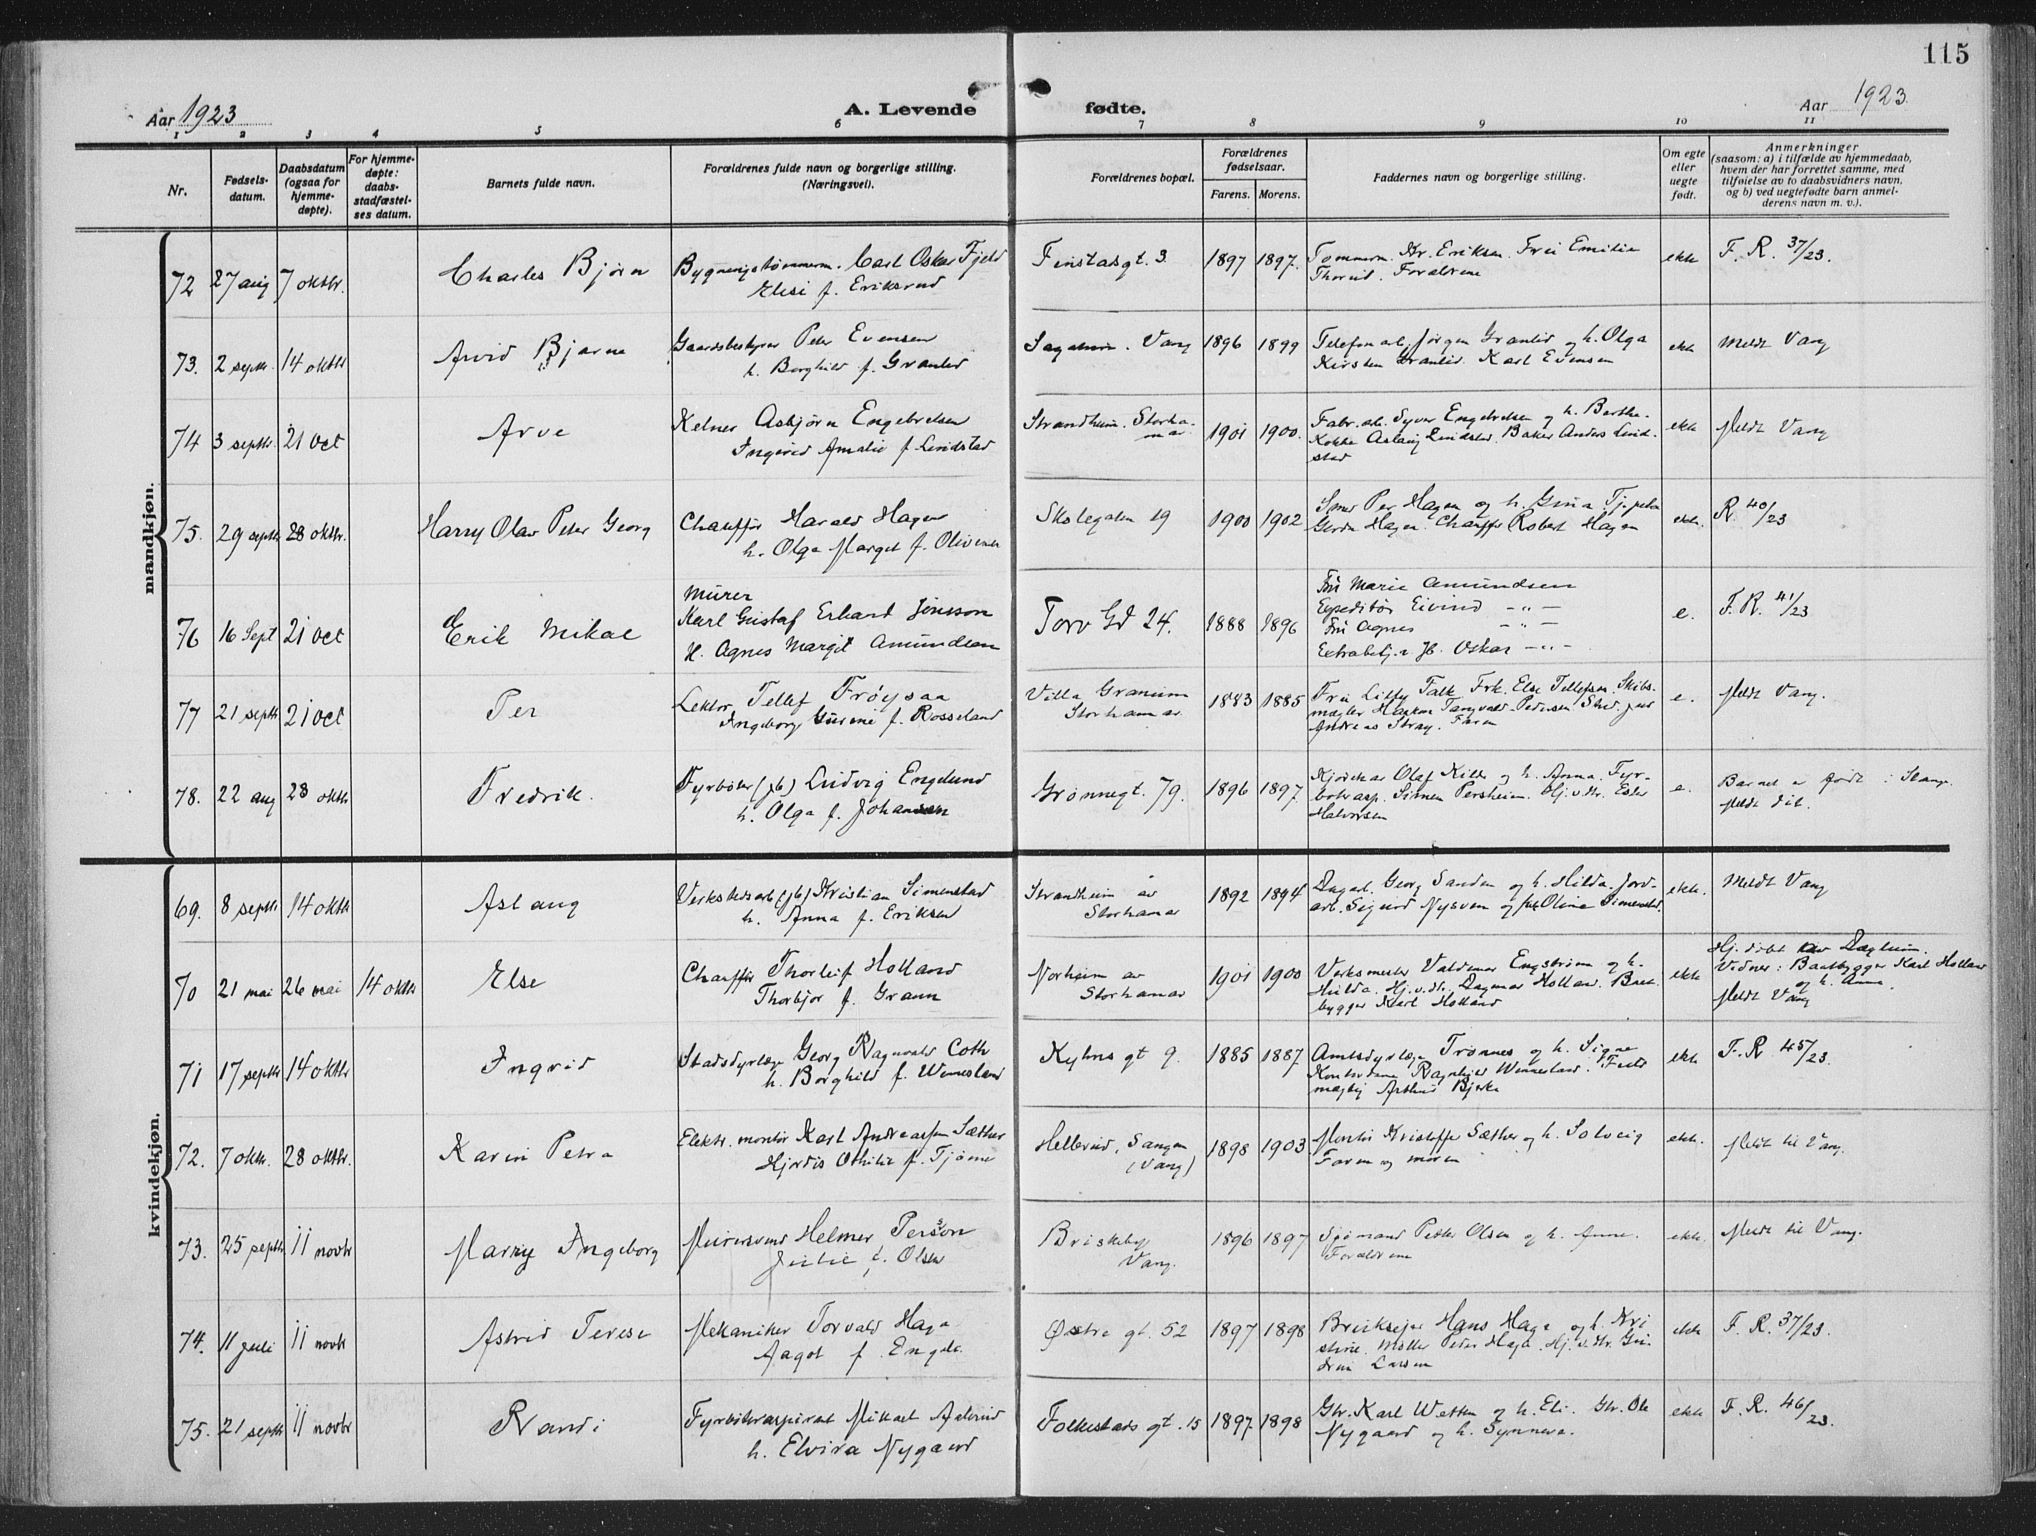 115
Aar 1923
A. Levende fødte.
Aar 1923
1 2 3 4 5 6 7 8 9 10 11
Nr.
Fødsels-
datum.
Daabsdatum
(ogsaa for
hjemme-
døpte).
For hjemme-
døpte:
daabs-
stadfæstel-
ses datum.
Barnets fulde navn.
Forældrenes fulde navn og borgerlige stilling.
(Næringsvei).
Forældrenes bopæl.
Forældrenes
fødselsaar.
Farens. Morens.
Faddernes navn og borgerlige stilling.
Om egte
eller
uegte
født.
Anmerkninger
(saasom: a) i tilfælde av hjemmedaab,
hvem der har forrettet samme, med
tilføielse av to daabsvidners navn,
og b) ved uegtefødte barn anmel-
derens navn m. v.).
mandkjøn.
72 27 aug 7 oktbr. Charles Bjørn
Carl Oskar Fjeld
Elise f. Eriksrud
Finstadsgt. 3 1897 1897.
Tømmerm. Kr. Eriksen. Fru Emilie
Thorud. Forældrene
ekte F. R. 37/23.
73. 2 septbr. 14 oktbr Arvid Bjarne
Gaardsbestyrer Peter Evensen
h. Borghild f. Granlid
Vang 1896 1899
Telefonarb. Jørgen Granlid og h. Olga
Kirsten Granlid. Karl Evensen
ekte Meldt Vang
74 3 septbr. 21 oct Arve
Kelner Asbjørn Engebretsen
Ingerid Amalie f. Lindstad
Strandheim. Storha-
mar 1901 1900.
Fabr. arb. Syver Engebretsen og h. Berthe.
Kokke Aslaug Lindstad. Baker Anders Lind-
stad
ekte Meldt Vang
75. 29 septbr 28 oktbr. Harry Olav Peter Georg
Chauffør Harald Hagen
h. Olga Marget f.
Skolegaten 19 1900 1902
Per Hagen og h. Gina
Gerda Hagen. Chauffør Robert Hagen
ekte. R. 40/23
76 16 Sept 21 oct Erik Mikal
Murer
Karl Gustaf Erhard Jonsson
H. Agnes Margit Amundsen
Torv Gd 24. 1888 1896
Fru Marie Amundsen
Expeditør Eivind -"-
Fru Agnes -"-
Oskar -"-
e. F. R. 41/23
77 21 septbr 21 oct Per
Lektor Tellef Frøysaa
Ingeborg Gurine f. Rosseland
Villa Granum
Storhamar 1883 1885
Fru Lilly Falk. Frk. Else Tellefsen. Skibs-
mægler Haakon Tangvald Pedersen Stud. jur
Andreas Stray. Faren
e. Meldt Vang.
78. 22 aug 28 oktbr Fredrik.
Fyrbøter (jb) Ludvig Englund
h. Olga f. Johansen
Grønnegt. 79. 1896 1897
Olaf Kilde og h. Anna. Fyr-
bøterasp. Simen Persheim. Hj. v. dtr. Ester
Halvorsen
e. Barnet er født i Stange.
Meldt dit.
kvindekjøn.
69. 8 septbr 14 oktbr Aslaug
Verkstedsarb (jb) Kristian Simenstad
h. Anna f. Eriksen
Strandheim av
Storhamar 1892 1894
Dagarb. Georg Sanden og h. Hilda. Jord-
arb. Sigurd Nysveen og frk Oline Simenstad.
ekte. Meldt Vang
70 21 mai 26 mai 14 oktbr Else
Chauffør Thorleif Holland
Thorbjør f. Grann
Norheim av
Storhamar 1901 1900
Verksmester Valdemar Engstrøm og h.
Hilda. Hj. v. dtr. Dagmar Holland. Baat-
bygger Karl Holland
ekte Hj. døbt av
Vidner: Baatbygger Karl Holland
og h. Anna.
Meldt Vang
71 17 septbr 14 oktbr Ingrid
Stadsdyrlæge Georg Ragnvald Coth
h. Borghild f. Wennesland
Kyhns gt 9. 1885 1887
Amtsdyrlæge Trønnes og h. Signe
Kontordame Ragnhild Wennesland.
Arthur Bjerke
ekte F. R. 45/23.
72. 7 oktbr. 28 oktbr. Karin Petra
Elektr. montør Karl Andreassen Sæther
Hjørdis Othilie f. Tjøme
Hellerud, Sangen
(Vang) 1898 1903
Montør Kristoffer Sæther og h. Solveig
Faren og moren
ekte. Meldt til Vang.
73. 25 septbr 11 novbr Marry Ingeborg
Murersvend Helmer Persson
Julie f. Olsen
Briskeby
Vang. 1896 1897
Sjømand Peder Olsen og h. Anne.
Forældrene
ekte. Meldt til Vang.
74. 11 juli 11 novbr Astrid Terese
Mekaniker Torvald Haga
Aagot f. Engele
Østre gt. 52 1897 1898
Hans Haga og h. Kri
stine. Møller Peter Haga. Hj. v. dtr. Gu-
drun Larsen
ekte F. R. 37/23.
75. 21 septbr 11 novbr Randi
Fyrbøteraspirant Mikael Aalerud
h. Elvira Nygaard
Folkestads gt. 15 1897 1898
Gbr. Karl Wetten og h. Eli. Gbr. Ole
Nygaard og h. Synneva.
ekte F. R. 46/23.